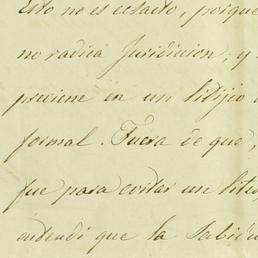 Esto no es esacto, porque
no radica Juridicion, y
previene en un litijio
formal. Fuera de que,
fue para evitar un liti
entendi que la Sabi